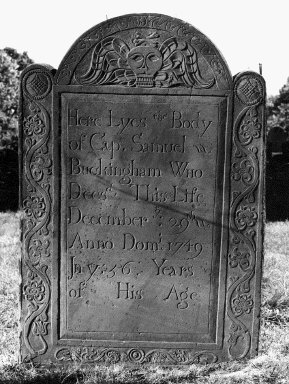 Here Lyes the Body
of Cap. Samuel
Buckingham Who
Decsd This Life
December ye 29th
Anno Dom: 1749
In ye 56 Years
of His Age